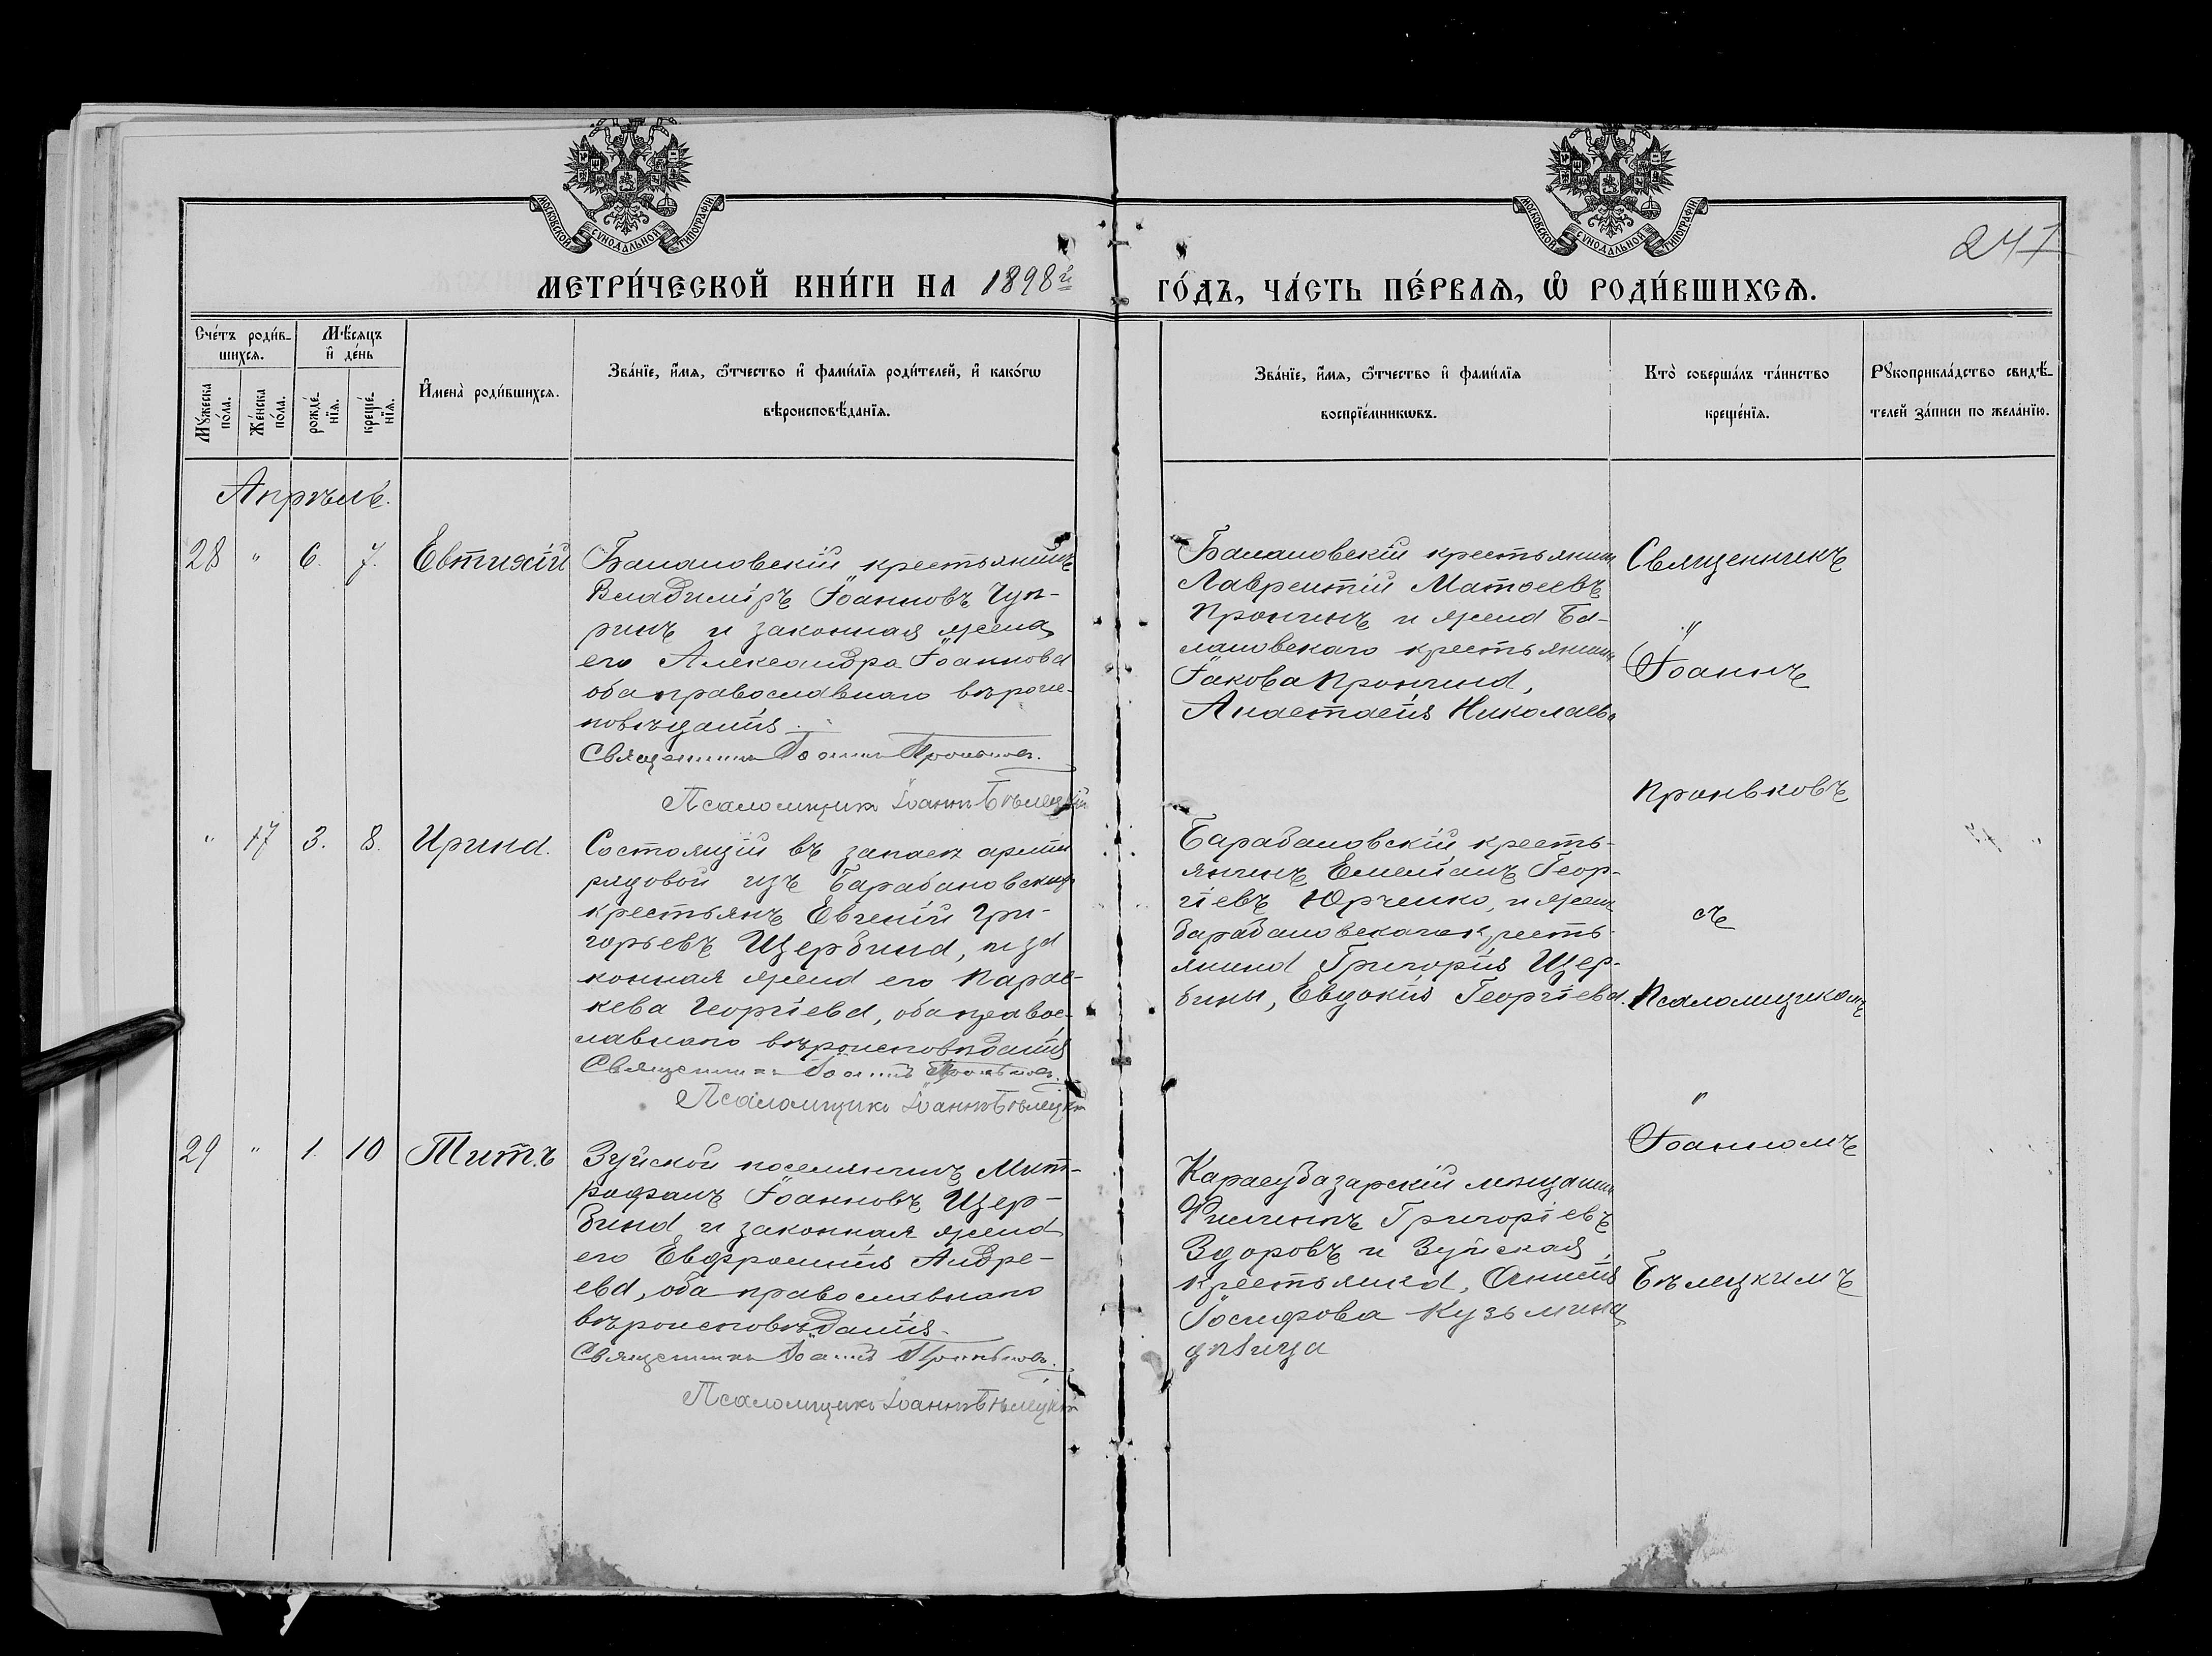 МОСКОВСКОЙ СѴНОДАЛЬНОЙ ТИПОГРАФІИ
МОСКОВСКОЙ СѴНОДАЛЬНОЙ ТИПОГРАФІИ
241
МЕТРИ́ЧЕСКОЙ КНИ́ГИ НА 1898й
ГО́ДЪ, ЧА́СТЬ ПЕ́РВАѦ, Ѡ҆ РОДИ́ВШИХСѦ.
Сче́тъ роди́в-
шихсѧ.
Мꙋ́жеска по́ла.
Же́нска по́ла.
Мѣ́сяцъ
и҆ де́нь
рожде́-
нїѧ.
креще́-
нїѧ.
И҆мена̀ роди́вшихсѧ.
Зва́нїе, и҆́мѧ, ѻ҆́тчество и҆ фами́лїѧ роди́телей, и҆ како́гѡ
вѣроисповѣ́данїѧ.
Зва́нїе, и҆́мѧ, ѻ҆́тчество и҆ фами́лїѧ
воспрїе́мникѡвъ.
Кто̀ соверша́лъ та́инство
креще́нїѧ.
Рꙋкоприкла́дство свидѣ́-
телей за́писи по жела́нїю.
Апрѣль.
28 " 6. 7. Евтихій
Балановскій крестьянинъ
Владиміръ Іоанновъ Чуп-
ринъ и законная жена
его Александра Іоаннова
оба православнаго вѣроис-
повѣданія.
Священникъ Іоаннъ Проньковъ.
Псаломщикъ Іоаннъ Бѣлецкій
Балановскій крестьянинъ
Лаврентій Матѳеевъ
Пронинъ и жена Ба-
лановскаго крестьянина
Іакова Пронина,
Анастасія Николаева
Священникъ
"
Іоаннъ
Проньковъ
" 17 3. 8. Ирина.
Состоящій въ запасѣ арміи
рядовой изъ Барабановскихъ
крестьянъ Евгеній Гри-
горьевъ Щербина, и за
конная жена его Парас-
кева Георгіева, оба правос-
лавнаго вѣроисповѣданія
Священникъ Іоаннъ Проньковъ.
Псаломщикъ Іоаннъ Бѣлецкій
Барабановскій кресть-
янинъ Емеліанъ Геор-
гіевъ Юрченко, и жена
барабановскаго кресть-
янина Григорія Щер-
бины, Евдокія Георгіева.
съ
Псаломщикомъ
"
Іоанномъ
Бѣлецкимъ
29 " 1. 10 Титъ
Зуйской поселянинъ Мит-
рофанъ Іоанновъ Щер-
бина и законная жена
его Евфросинія Андре-
ева, оба православнаго
вѣроисповѣданія.
Священникъ Іоаннъ Проньковъ.
Псаломщикъ Іоаннъ Бѣлецкій
Карасубазарскій мѣщанинъ
Филиппъ Григоріевъ
Здоровъ и Зуйская
крестьянка,
Іосифова Кузьмина
дѣвица